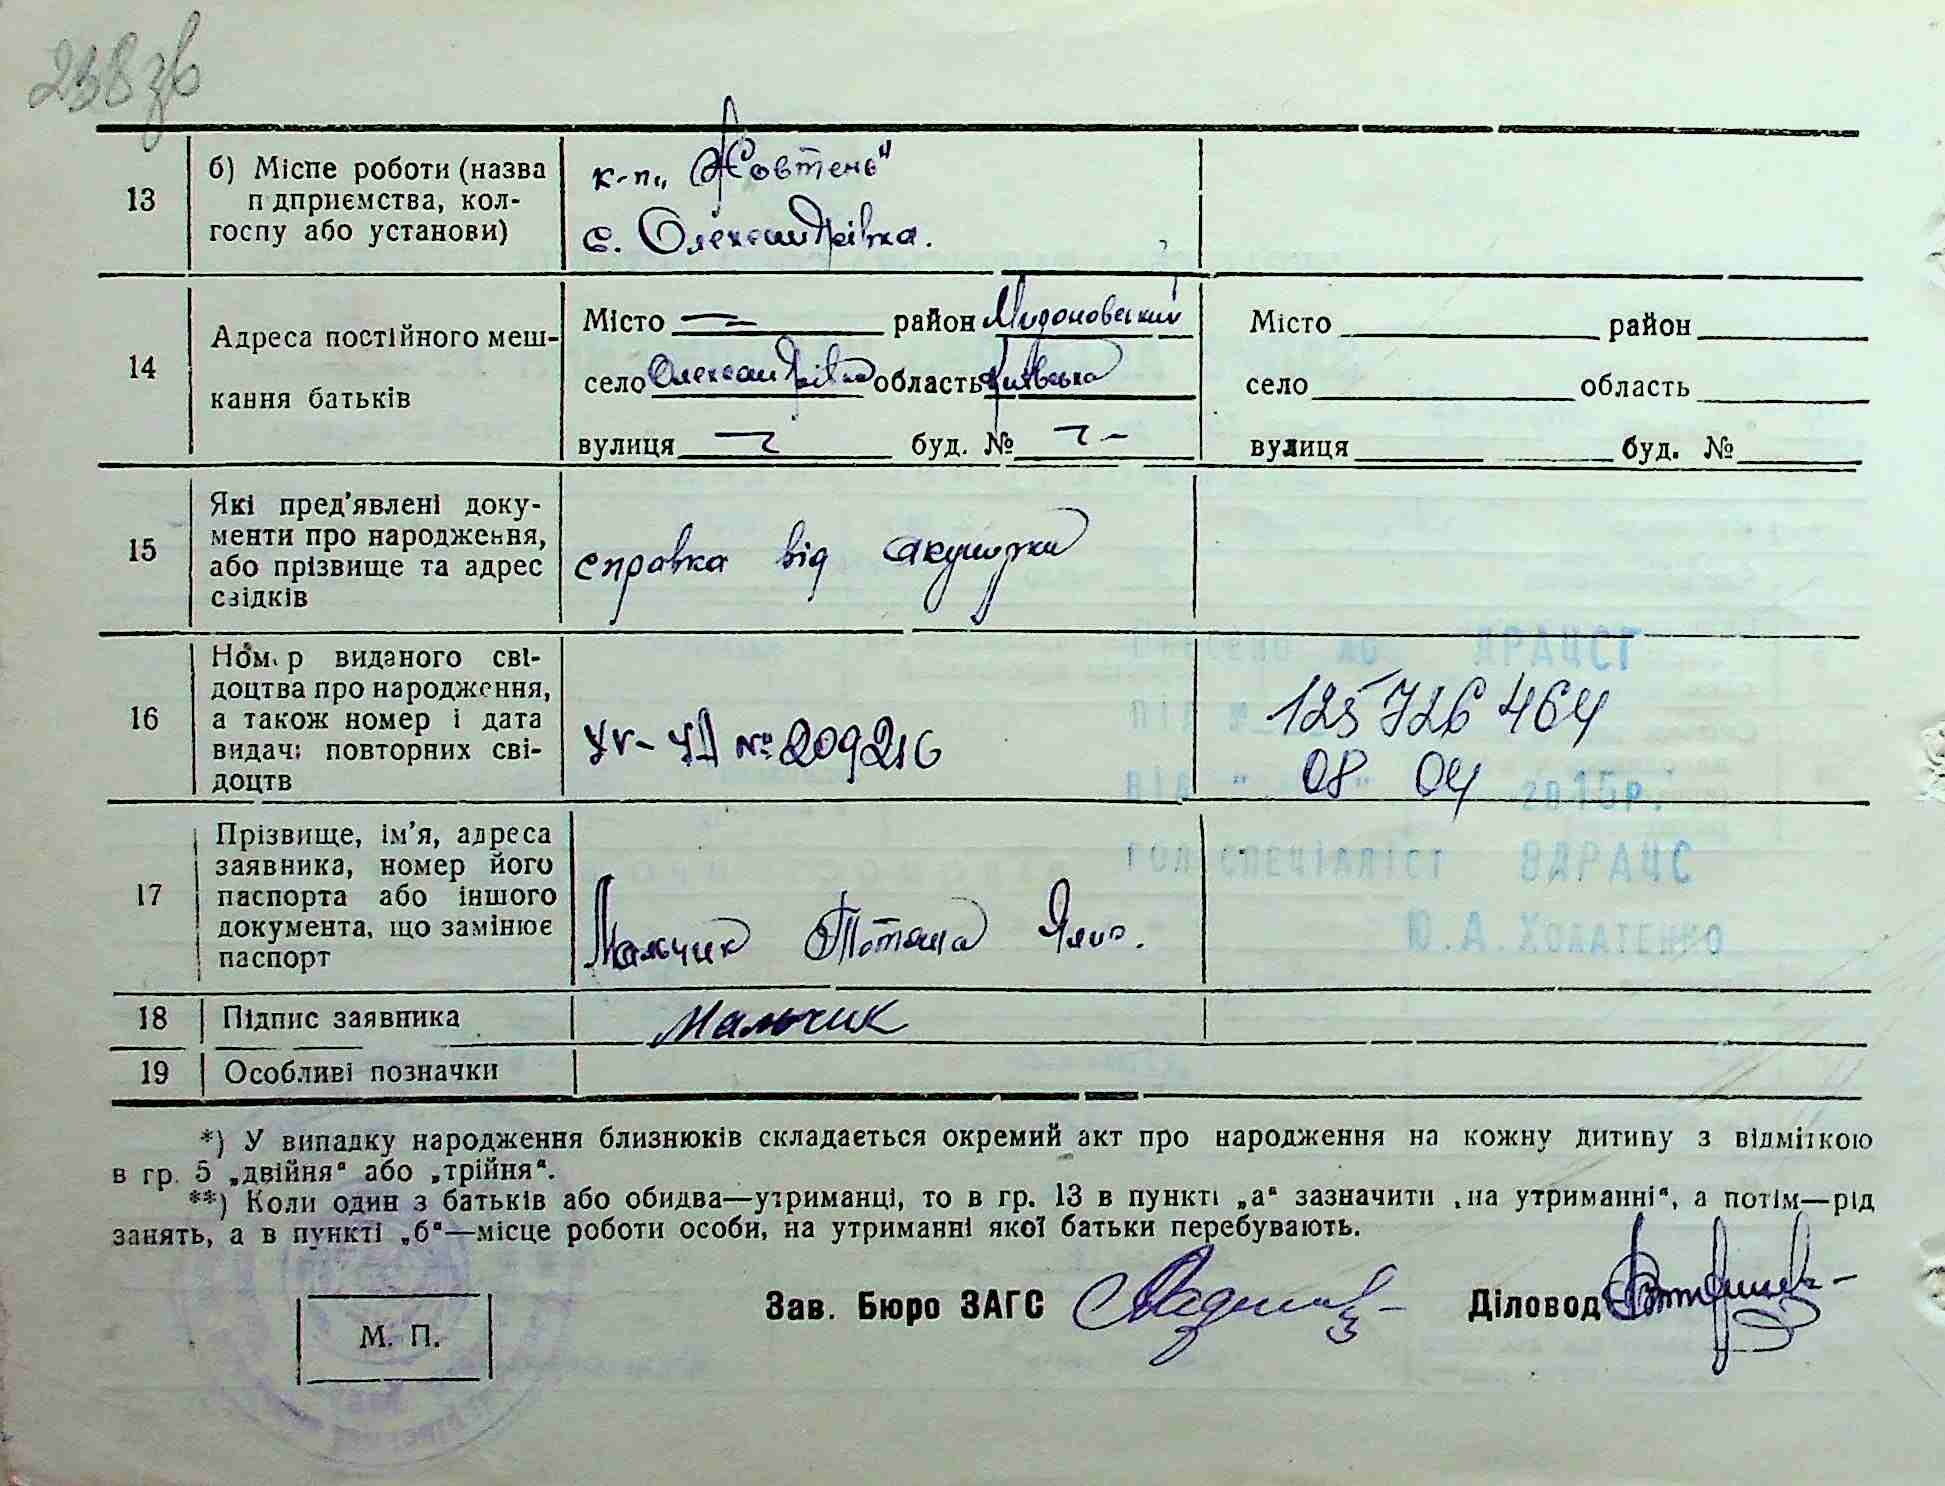 238зв
13
б) Місце роботи (назва
п дприємства, кол-
госпу або установи)
к-п „Жовтень"
с. Олександрівка.
14
Адреса постійного меш-
кання батьків
Місто район Мироновський
село Олександрівка область Київська
вулиця буд. №
Місто район
село область
вулиця буд. №
15
Які пред’явлені доку-
менти про народження,
або прізвище та адрес
свідків
справка від акушерки
16
Ном р виданого сві-
доцтва про народження,
а також номер і дата
видачі повторних сві-
доцтв
№ 209216
Внесено до ДРАЦСГ
під № 125726464
від " 08 " 04 2015р.
гол.спеціаліст ВДРАЦС
Ю.А.Холатенко
17
Прізвище, ім’я, адреса
заявника, номер його
паспорта або іншого
документа, що замінює
паспорт
Мальчик Тетяна
18
Підпис заявника
Мальчик
19
Особливі позначки
*) У випадку народження близнюків складається окремий акт про народження на кожну дитину з відміткою
в гр. 5 „двійня“ або „трійня“.
**) Коли один з батьків або обидва—утриманці, то в гр. 13 в пункті „а“ зазначити „на утриманні“, а потім—рід
занять, а в пункті „б“—місце роботи особи, на утриманні якої батьки перебувають.
Зав. Бюро ЗАГС
Діловод
М. П.